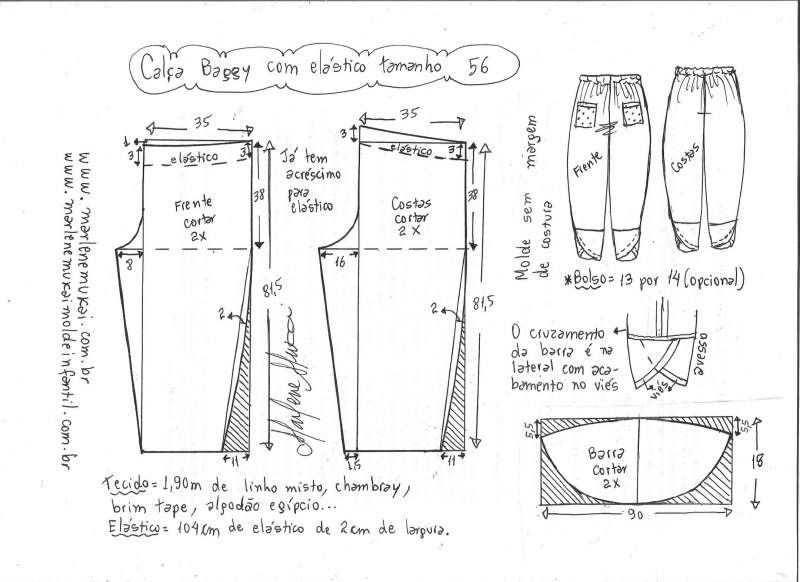 Calça Baggy com elástico tamanho 56
www.marlenemukai.com.br
www.marlenemukaimoldeinfantil.com.br
35
1
3
elástico
3
38
Frente
cortar
2X
8
81,5
2
11
Já tem
acréscimo
para
elástico
Marlene Mukai
35
3
elástico
3
38
Costas
cortar
2X
16
81,5
2
1,5
11
Molde sem margem
de costura
Frente
Costas
*Bolso= 13 por 14 (opcional)
O cruzamento
da barra é na
lateral com aca-
bamento no viés
avesso
viés
5,5
5,5
Barra
cortar
2X
18
90
Tecido= 1,90m de linho misto, chambray,
brim tape, algodão egípcio...
Elástico= 104cm de elástico de 2cm de largura.